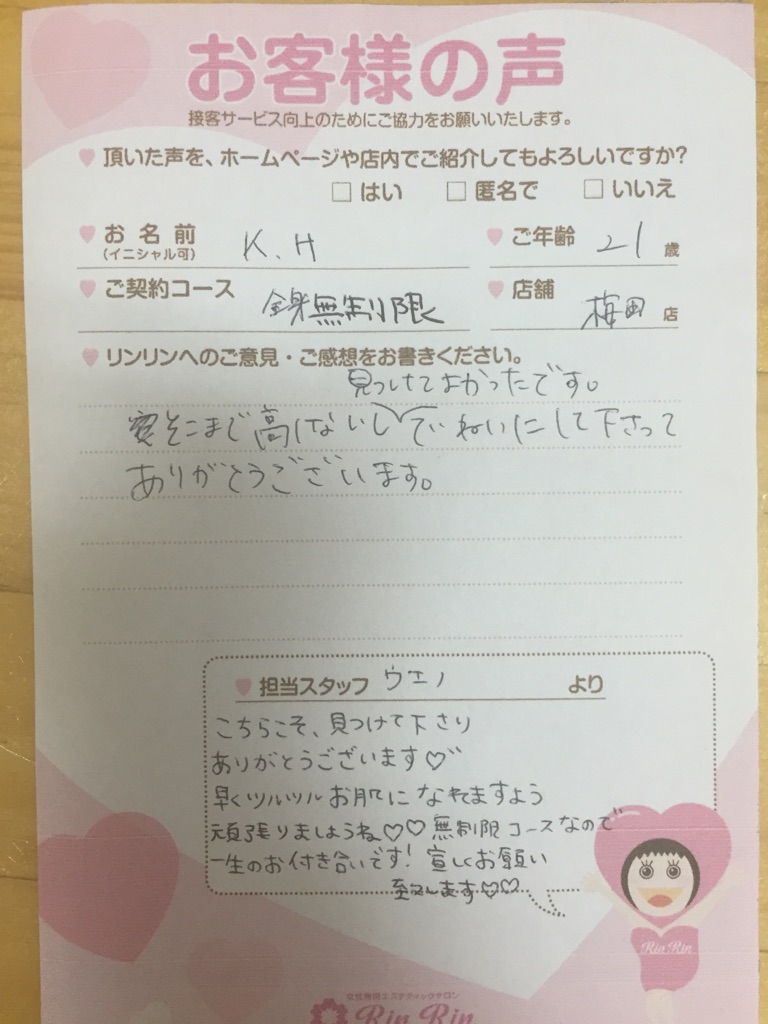 お客様の声
接客サービス向上のためにご協力をお願いいたします。
頂いた声を、ホームページや店内でご紹介してもよろしいですか?
□ はい □ 匿名で □ いいえ
お名前 K.H ご年齢 21 歳
(イニシャル可)
ご契約コース 全身無制限 店舗 梅田 店
リンリンへのご意見・ご感想をお書きください。
見つけてよかったです。
そこまで高くないしていねいにして下さって
ありがとうございます。
担当スタッフ ウエノ より
こちらこそ、見つけて下さり
ありがとうございます♡
早くツルツルお肌になれますよう
頑張りましょうね♡♡ 無制限コースなので
一生のお付き合いです! 宜しくお願い
致します♡♡
Rin Rin
Rin Rin